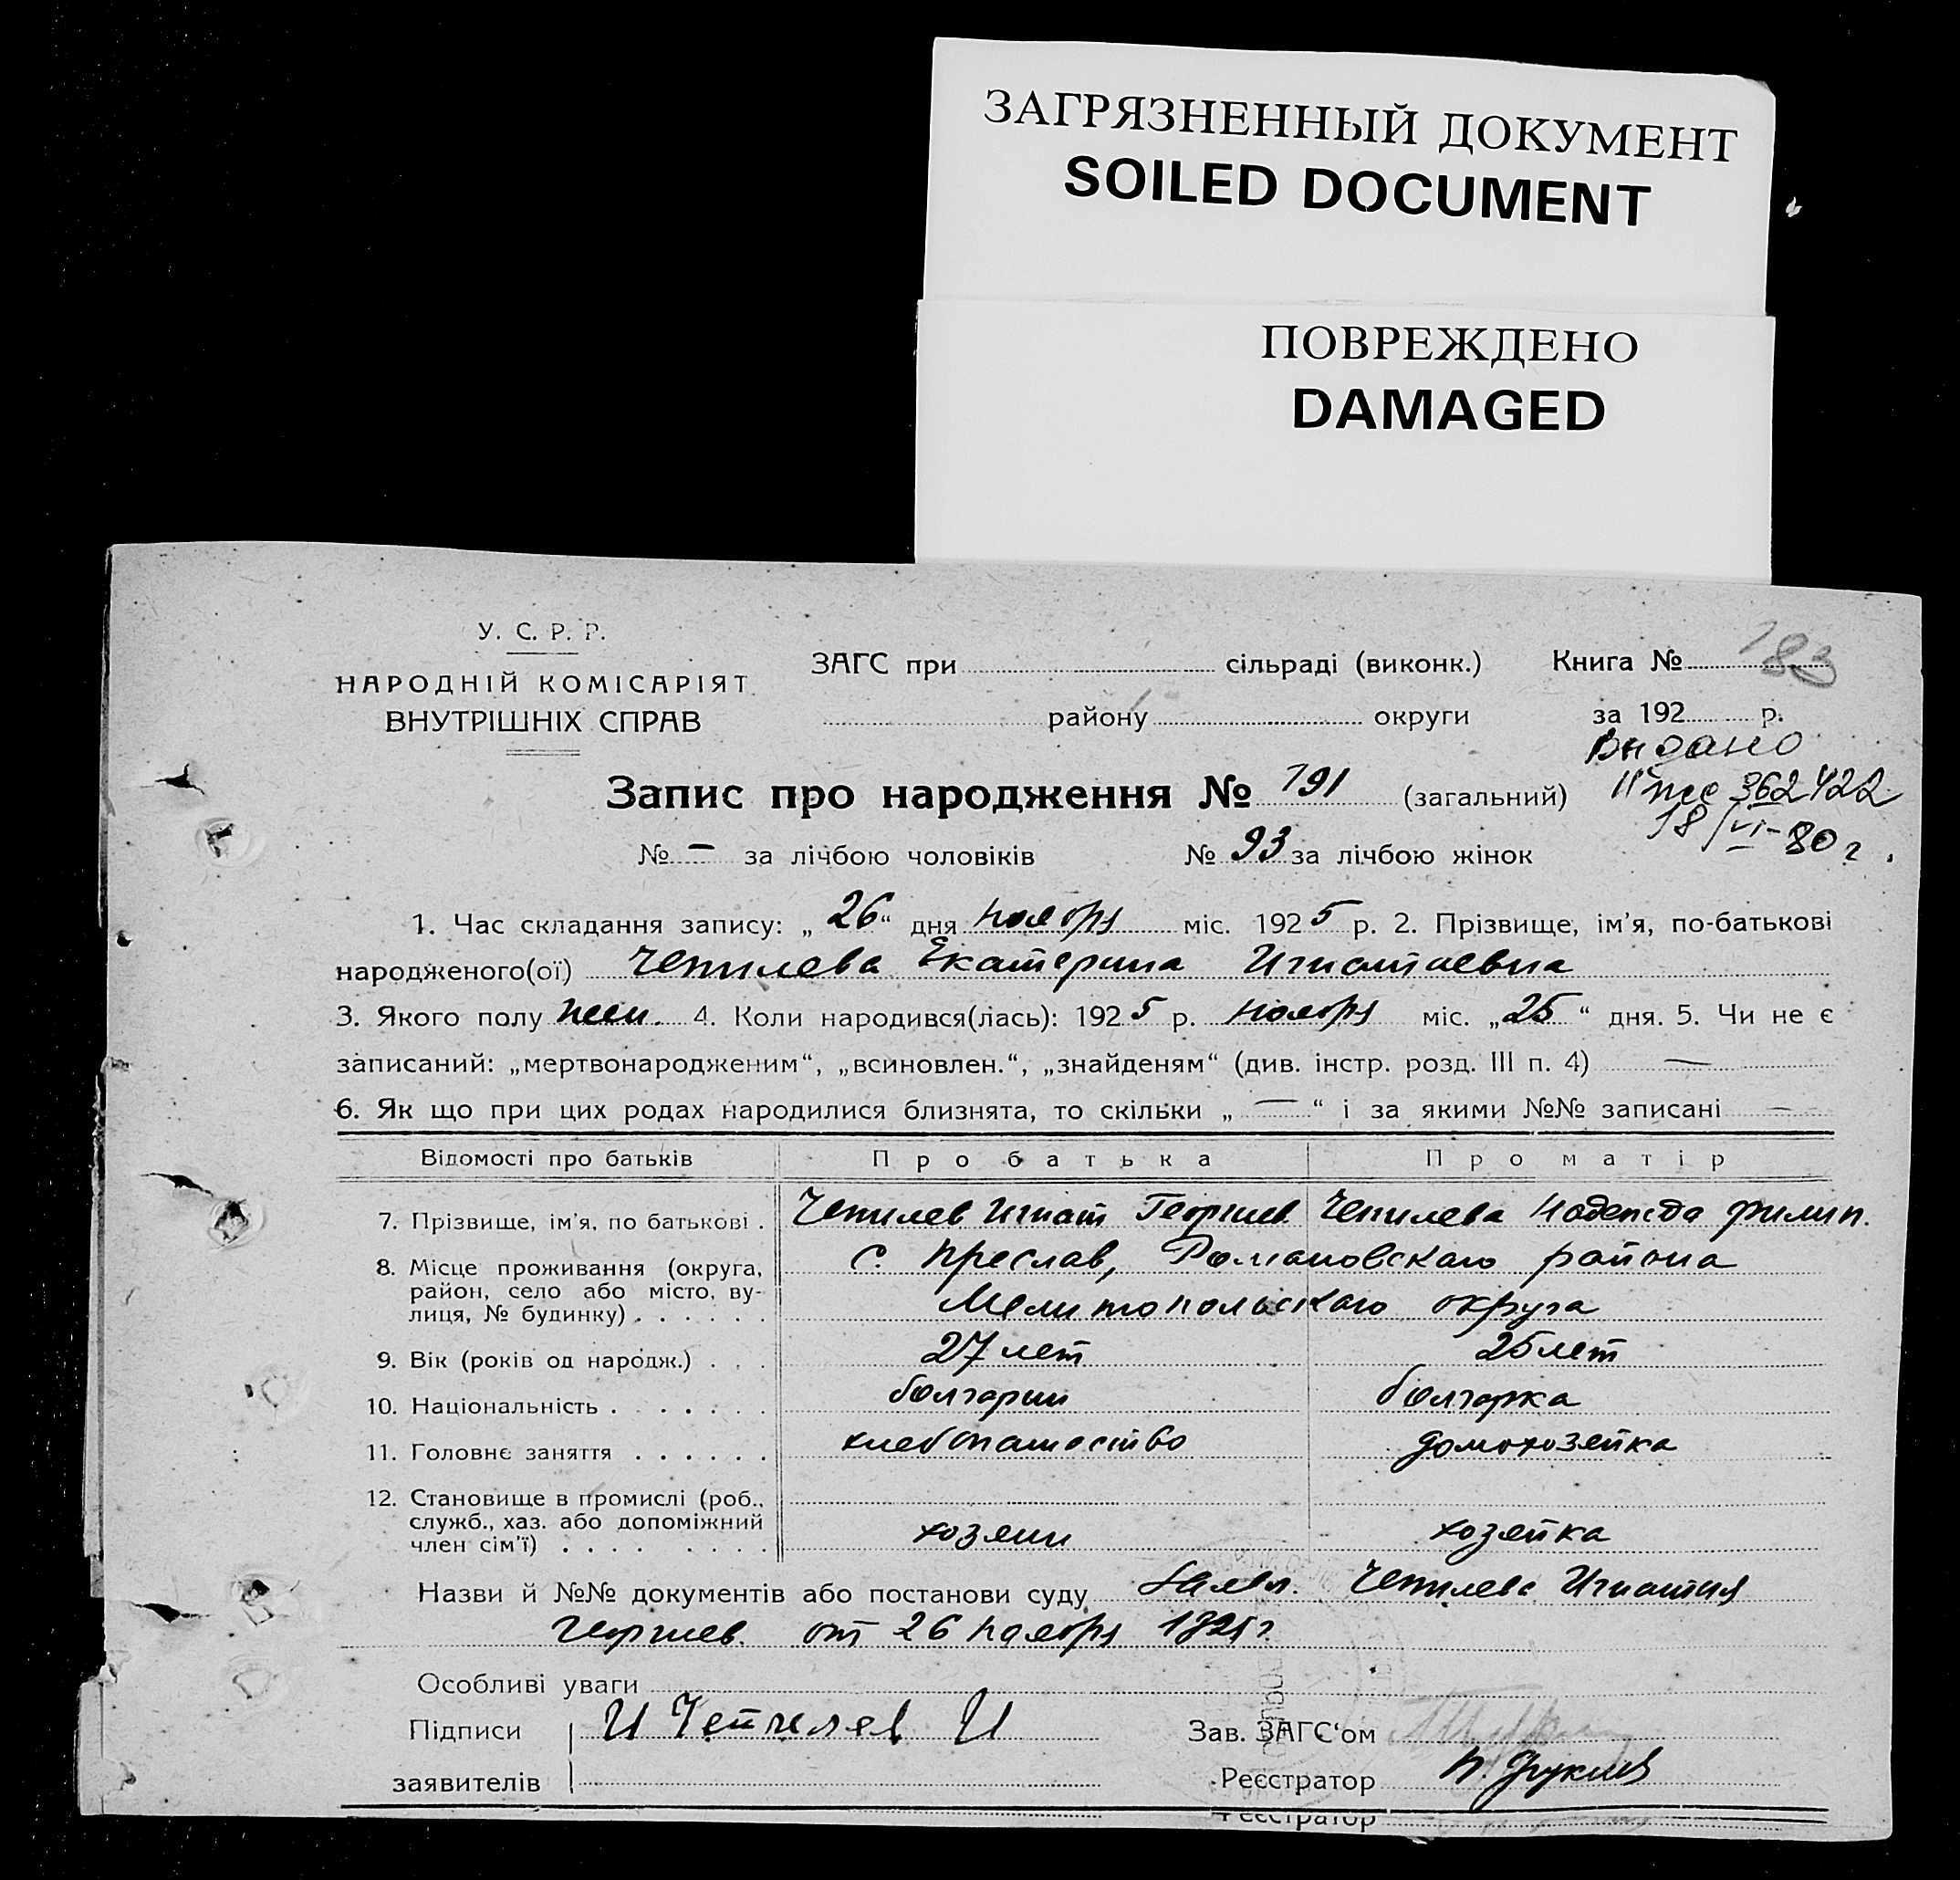 ЗАГРЯЗНЕННЫЙ ДОКУМЕНТ
SOILED DOCUMENT
ПОВРЕЖДЕНО
DAMAGED
У. С. Р. Р.
НАРОДНІЙ КОМІСАРІЯТ
ВНУТРІШНІХ СПРАВ
ЗАГС при сільраді (виконк.)
району округи
Книга № 183
за 192 р.
Видано
362422
18/VI-80 г.
Запис про народження № 191 (загальний)
№ — за лічбою чоловіків № 93 за лічбою жінок
1. Час складання запису: „26“ дня ноября міс. 1925 р. 2. Прізвище, ім'я, по-батькові
народженого(ої) Чепилева Екатерина Игнатаевна
3. Якого полу жен. 4. Коли народився(лась): 1925 р. ноября міс. „25“ дня. 5. Чи не є
записаний: „мертвонародженим“, „всиновлен.“, „знайденям“ (див. інстр. розд. III п. 4) —
6. Як що при цих родах народилися близнята, то скільки „—“ і за якими №№ записані —
Відомості про батьків Про батька Про матір
7. Прізвище, ім'я, по батькові . Чепилев Игнат Георгиев. Чепилева Надежда Филип.
8. Місце проживання (округа, район, село або місто, вулиця, № будинку) . . . . . . с. Преслав, Романовскаго района
Мелитопольскаго округа
9. Вік (років од народж.) . . . 27 лет 25 лет
10. Національність . . . . . . . болгарин болгарка
11. Головнє заняття . . . . . . хлебопашество домохозяйка
12. Становище в промислі (роб., служб., хаз. або допоміжний член сім'ї) . . . . . . . . хозяин хозяйка
Назви й №№ документів або постанови суду Заявл. Чепилева Игнатия
Георгиев. от 26 ноября 1925 г.
Особливі уваги
Підписи И Чепилев И
заявителів
Зав. ЗАГС‘ом
Реєстратор
Реєстратор